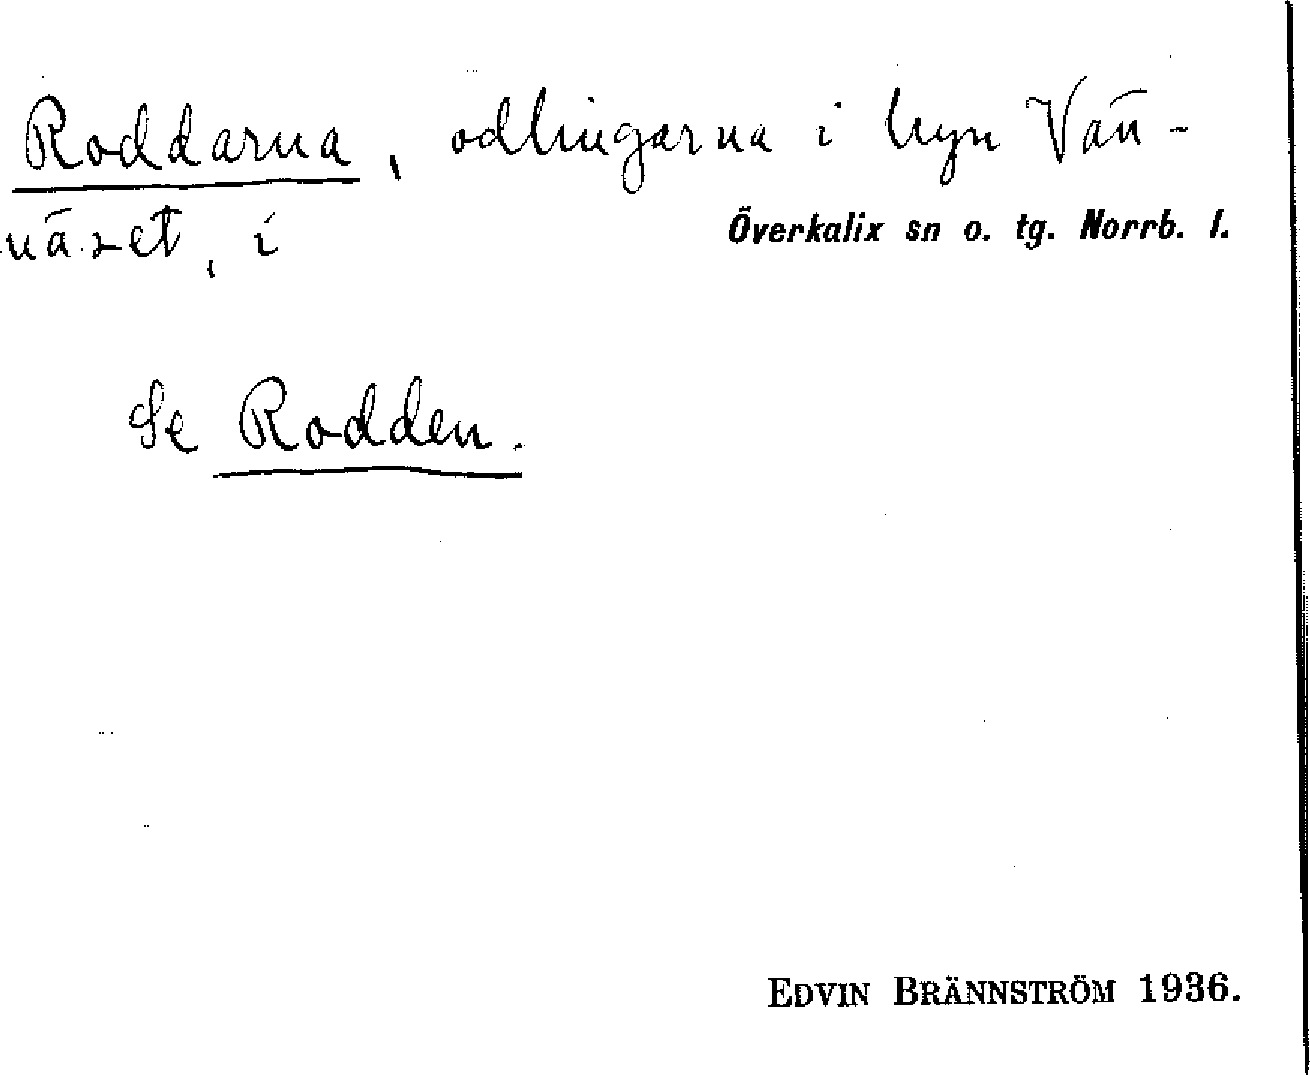 Roddarna, odlingarna i byn Vän-
näset, i Överkalix sn o. tg. Norrb. l.
Se Rodden.
EDVIN BRÄNNSTRÖM 1936.